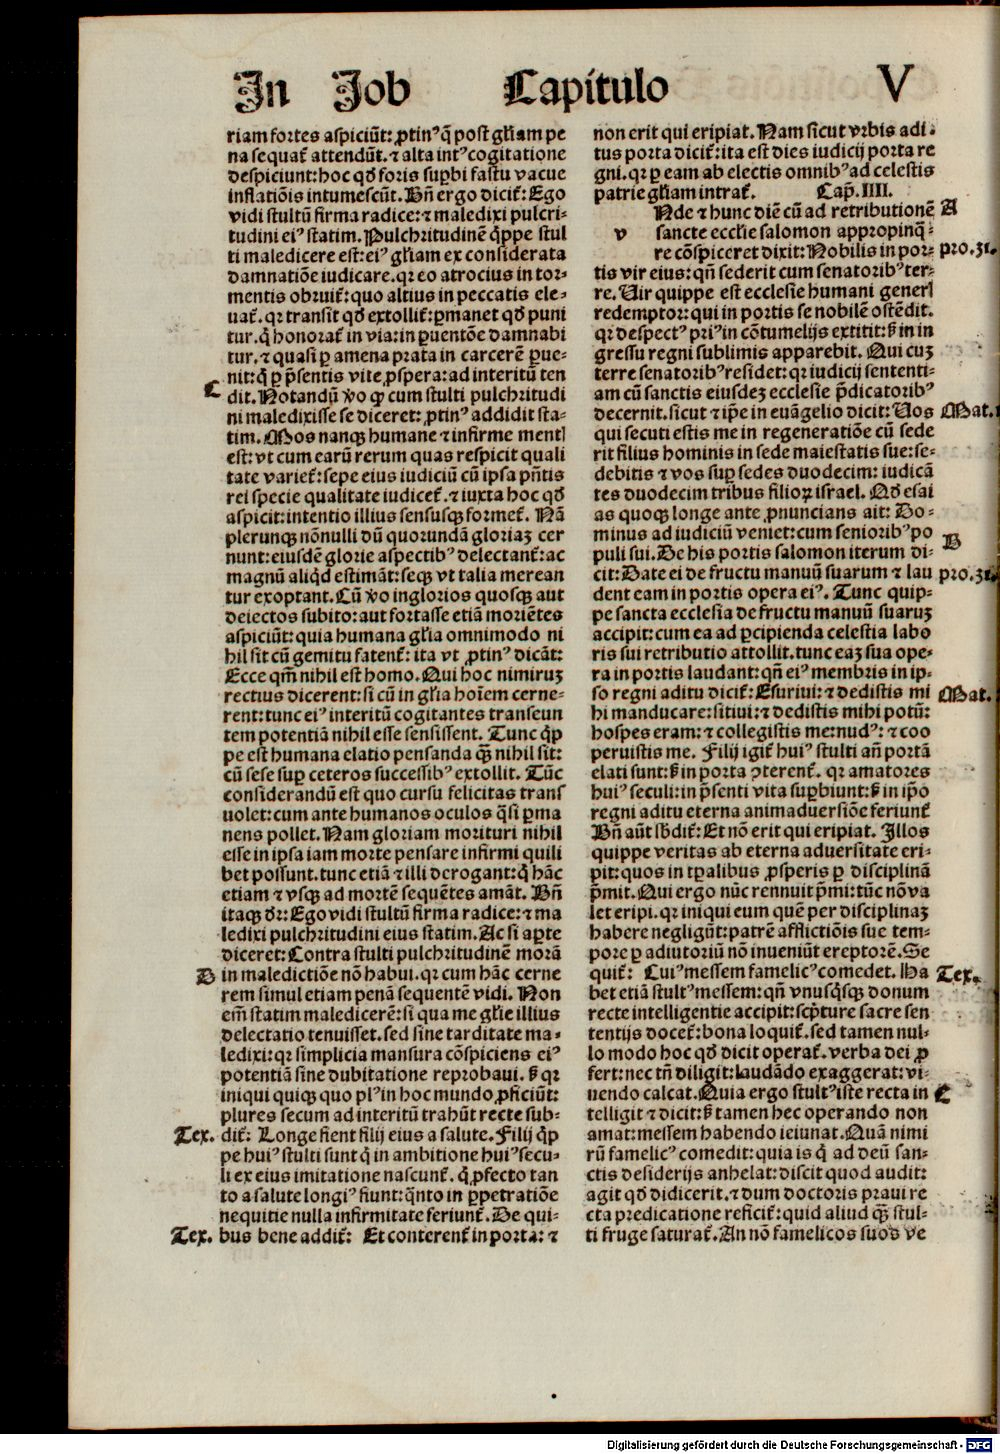 In Job Capitulo V
riam fortes aspiciūt: ꝓtinꝰ q̄ post gl̄iam pe
na sequat᷑ attendūt. ⁊ alta intꝰ cogitatione
despiciunt: hoc qđ foris suꝑbi fastu vacue
inflatiōis intumescūt. Bn̄ ergo dicit᷑: Ego
vidi stultū firma radice: ⁊ maledixi pulcri-
tudini eiꝰ statim. Pulchritudinē q̄ppe stul
ti maledicere est: eiꝰ gl̄iam ex considerata
damnatiōe iudicare. qꝛ eo atrocius in tor-
mentis obruit᷑: quo altius in peccatis ele-
uat᷑. qꝛ transit qđ extollit᷑: ꝑmanet qđ puni
tur. q̇ honorat᷑ in via: in ꝑuentōe damnabi
tur. ⁊ quasi ꝑ amena prata in carcerē ꝑue-
nit: q̇ ꝑ p̄sentis vite ꝓspera: ad interitū ten
C
dit. Notandū v̄o ꝙ cum stulti pulchritudi
ni maledixisse se diceret: ꝓtinꝰ addidit sta-
tim. Mos nanqꝫ humane ⁊ infirme mentꝭ
est: vt cum earū rerum quas respicit quali
tate variet᷑: sepe eius iudiciū cū ipsa pn̄tis
rei specie qualitate iudicet᷑. ⁊ iuxta hoc qđ
aspicit: intentio illius sensusqꝫ formet᷑. Nā
plerunqꝫ nonnulli dū quorundā gloriaꝫ cer
nunt: eiusdē glorie aspectibꝰ delectant᷑: ac
magnū aliqđ estimāt: seqꝫ vt talia merean
tur exoptant. Cū v̄o inglorios quosqꝫ aut
deiectos subito: aut fortasse etiā moriētes
aspiciūt: quia humana gl̄ia omnimodo ni
hil sit cū gemitu fatent᷑: ita vt ꝓtinꝰ dicāt:
Ecce qm̄ nihil est homo. Qui hoc nimiruꝫ
rectius dicerent: si cū in gl̄ia hoīem cerne-
rent: tunc eiꝰ interitū cogitantes transeun
tem potentiā nihil esse sensissent. Tunc q̇p
pe est humana elatio pensanda q̄ꝫ nihil sit:
cū sese suꝑ ceteros successibꝰ extollit. Tūc
considerandū est quo cursu felicitas trans
uolet: cum ante humanos oculos q̄si ꝑma
nens pollet. Nam gloriam morituri nihil
esse in ipsa iam morte pensare infirmi quili
bet possunt. tunc etiā ⁊ illi derogant: q̇ hāc
etiam ⁊ vsqꝫ ad mortē sequētes amāt. Bn̄
itaqꝫ dr̄: Ego vidi stultū firma radice: ⁊ ma
ledixi pulchritudini eius statim. Ac si aꝑte
diceret: Contra stulti pulchritudinē morā
D
in maledictiōe nō habui. qꝛ cum hāc cerne
rem simul etiam penā sequentē vidi. Non
em̄ statim maledicerē: si qua me gl̄ie illius
delectatio tenuisset. sed sine tarditate ma-
ledixi: qꝛ simplicia mansura cōspiciens eiꝰ
potentiā sine dubitatione reprobaui. s̄ꝫ qꝛ
iniqui quiqꝫ quo plꝰ in hoc mundo ꝓficiūt:
plures secum ad interitū trahūt recte sub-
Tex. dit᷑: Longe fient filij eius a salute. Filij q̇p
pe huiꝰ stulti sunt q̇ in ambitione huiꝰ secu-
li ex eius imitatione nascunt᷑. q̇ ꝓfecto tan
to a salute longiꝰ fiunt: q̄nto in ꝑpetratiōe
nequitie nulla infirmitate feriunt᷑. De qui-
Tex. bus bene addit᷑: Et conterent᷑ in porta: ⁊
non erit qui eripiat. Nam sicut vrbis adi-
tus porta dicit᷑: ita est dies iudicij porta re
gni. qꝛ ꝑ eam ab electis omnibꝰ ad celestis
patrie gl̄iam intrat᷑. Cap̄. IIII.
v Nde ⁊ hunc diē cū ad retributionē A
sancte eccl̄ie salomon appropinq̄-
re cōspiceret dixit: Nobilis in por- pro.31.
tis vir eius: qn̄ sederit cum senatoribꝰ ter-
re. Uir quippe est ecclesie humani generꝭ
redemptor: qui in portis se nobilē ostēdit.
qꝛ despectꝰ priꝰ in cōtumelijs extitit: s̄ꝫ in in
gressu regni sublimis apparebit. Qui cuꝫ
terre senatoribꝰ residet: qꝛ iudicij sententi-
am cū sanctis eiusdeꝫ ecclesie p̄dicatoribꝰ
decernit. sicut ⁊ ip̄e in euāgelio dicit: Uos Mat.1
qui secuti estis me in regeneratiōe cū sede
rit filius hominis in sede maiestatis sue: se-
debitis ⁊ vos suꝑ sedes duodecim: iudicā
tes duodecim tribus filioꝝ israel. Qđ esai
as quoqꝫ longe ante ꝓnuncians ait: Do-
minus ad iudiciū veniet: cum senioribꝰ po B
puli sui. De his portis salomon iterum di-
cit: Date ei de fructu manuū suarum ⁊ lau pro.31.
dent eam in portis opera eiꝰ. Tunc quip-
pe sancta ecclesia de fructu manuū suaruꝫ
accipit: cum ea ad ꝑcipienda celestia labo
ris sui retributio attollit. tunc eaꝫ sua ope-
ra in portis laudant: qn̄ eiꝰ membris in ip-
so regni aditu dicit᷑: Esuriui: ⁊ dedistis mi Mat.
hi manducare: sitiui: ⁊ dedistis mihi potū:
hospes eram: ⁊ collegistis me: nudꝰ: ⁊ coo
peruistis me. Filij igit᷑ huiꝰ stulti an̄ portā
elati sunt: s̄ꝫ in porta ꝯterent᷑. qꝛ amatores
huiꝰ seculi: in p̄senti vita suꝑbiunt: s̄ꝫ in ip̄o
regni aditu eterna animaduersiōe feriunt᷑
Bn̄ aūt sb̄dit᷑: Et nō erit qui eripiat. Illos
quippe veritas ab eterna aduersitate eri-
pit: quos in tꝑalibus ꝓsperis ꝑ disciplinā
p̄mit. Qui ergo nūc rennuit p̄mi: tūc nō va
let eripi. qꝛ iniqui eum quē per disciplinaꝫ
habere negligūt: patrē afflictiōis sue tem-
pore ꝑ adiutoriū nō inueniūt ereptorē. Se
quit᷑: Cuiꝰ messem famelicꝰ comedet. Ha Tex.
bet etiā stultꝰ messem: qn̄ vnusq̇sqꝫ donum
recte intelligentie accipit: sc̄pture sacre sen
tentijs docet᷑: bona loquit᷑. sed tamen nul-
lo modo hoc qđ dicit operat᷑. verba dei ꝓ
fert: nec tn̄ diligit: laudādo exaggerat: vi-
uendo calcat. Quia ergo stultꝰ iste recta in C
telligit ⁊ dicit: s̄ꝫ tamen hec operando non
amat: messem habendo ieiunat. Quā nimi
rū famelicꝰ comedit: quia is q̇ ad deū san-
ctis desiderijs anhelat: discit quod audit:
agit qđ didicerit. ⁊ dum doctoris praui re
cta predicatione reficit᷑: quid aliud q̄ꝫ stul-
ti fruge saturat᷑. An nō famelicos suos ve
Digitalisierung gefördert durch die Deutsche Forschungsgemeinschaft - DFG